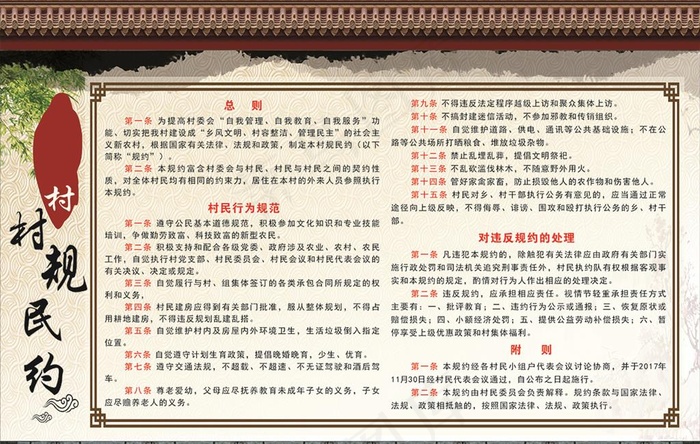 村
村规民约
总 则
第一条 为提高村委会“自我管理、自我教育、自我服务”功
能、切实把我村建设成“乡风文明、村容整洁、管理民主”的社会主
义新农村，根据国家有关法律、法规和政策，制定本村规民约（以下
简称“规约”）。
第二条 本规约富含村委会与村民、村民与村民之间的契约性
质，对全体村民均有相同的约束力，居住在本村的外来人员参照执行
本规约。
村民行为规范
第一条 遵守公民基本道德规范，积极参加文化知识和专业技能
培训，争做勤劳致富、科技致富的新型农民。
第二条 积极支持和配合各级党委、政府涉及农业、农村、农民
工作，自觉执行村党支部、村民委员会、村民会议和村民代表会议的
有关决议、决定或规定。
第三条 自觉履行与村、组集体签订的各类承包合同所规定的权
利和义务，
第四条 村民建房应得到有关部门批准，服从整体规划，不得占
用耕地建房，不得违反规划乱建乱搭。
第五条 自觉维护村内及房屋内外环境卫生，生活垃圾倒入指定
位置。
第六条 自觉遵守计划生育政策，提倡晚婚晚育，少生、优育。
第七条 遵守交通法规，不超载、不超速、不无证驾驶和酒后驾
车。
第八条 尊老爱幼，父母应尽抚养教育未成年子女的义务，子女
应尽赡养老人的义务。
第九条 不得违反法定程序越级上访和聚众集体上访。
第十条 不搞封建迷信活动，不参加邪教和传销组织。
第十一条 自觉维护道路、供电、通讯等公共基础设施；不在公
路等公共场所打晒粮食、堆放垃圾杂物。
第十二条 禁止乱埋乱葬，提倡文明祭祀。
第十三条 不乱砍滥伐林木，不随意野外用火。
第十四条 管好家禽家畜，防止损毁他人的农作物和伤害他人。
第十五条 村民对乡、村干部执行公务有意见的，应当通过正常
途径向上级反映，不得侮辱、诽谤、围攻和殴打执行公务的乡、村干
部。
对违反规约的处理
第一条 凡违犯本规约的，除触犯有关法律应由政府有关部门实
施行政处罚和司法机关追究刑事责任外，村民执约队有权根据客观事
实和本规约的规定，酌情对行为人作出相应的处理决定。
第二条 违反规约，应承担相应责任。视情节轻重承担责任方式
主要有：一、批评教育；二、违约行为公示或通报；三、恢复原状或
赔偿损失；四、小额经济处罚；五、提供公益劳动补偿损失；六、暂
停享受上级优惠政策和村集体福利。
附 则
第一条 本规约经各村民小组户代表会议讨论协商，并于2017年
11月30日经村民代表会议通过，自公布之日起施行。
第二条 本规约由村民委员会负责解释。规约条款与国家法律、
法规、政策相抵触的，按照国家法律、法规、政策执行。